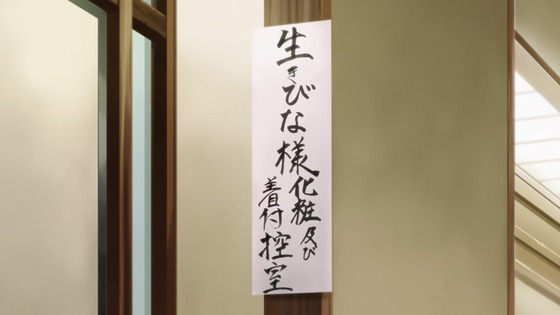 生きびな様化粧及び
着付控室